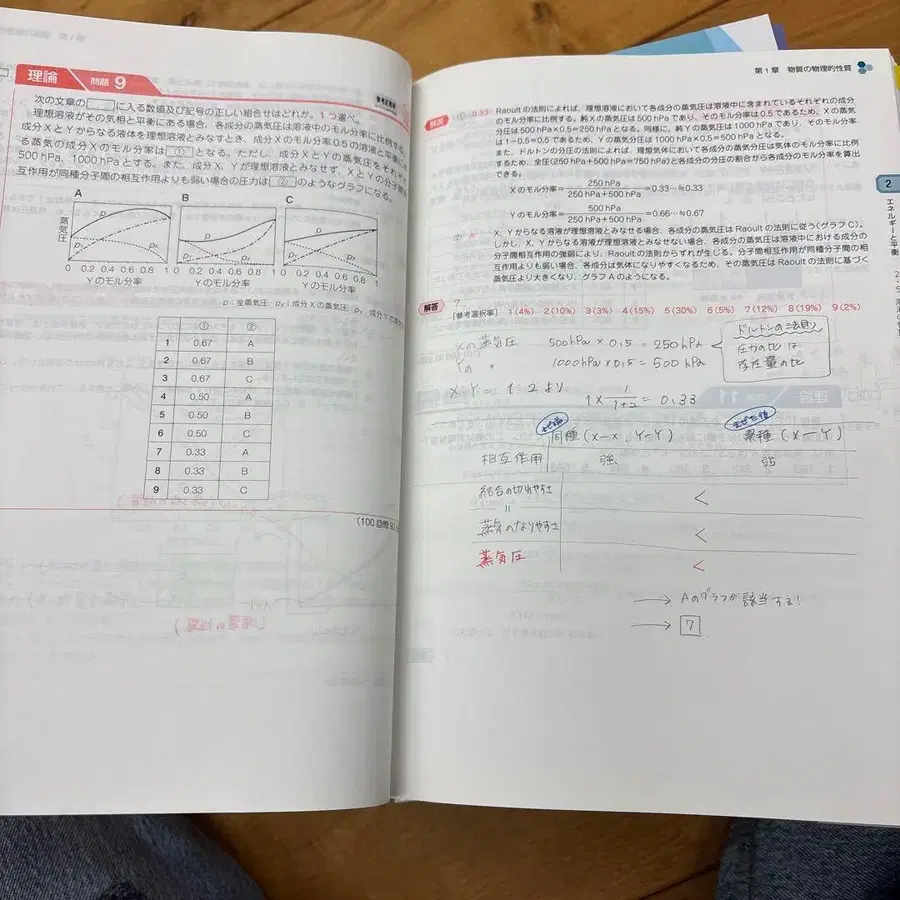 理論 問題 9
次の文章の□に入る数値及び記号の正しい組合せはどれか。1つ選べ。
理想溶液がその気相と平衡にある場合、各成分の蒸気圧は溶液中のモル分率に比例する。
成分XとYからなる液体を理想溶液とみなすとき、成分Xのモル分率0.5の溶液と平衡にあ
る蒸気の成分Xのモル分率は ① となる。ただし、成分XとYの蒸気圧をそれぞれ
500 hPa、1000 hPaとする。また、成分X、Yが理想溶液とみなせず、XとYの分子間
互作用が同種分子間の相互作用よりも弱い場合の圧力は ② のようなグラフになる。
A B C
蒸気圧
0 0.2 0.4 0.6 0.8 1 0 0.2 0.4 0.6 0.8 1 0 0.2 0.4 0.6 0.8 1
Yのモル分率 Yのモル分率 Yのモル分率
p：全蒸気圧 pX：成分Xの蒸気圧
① ②
1 0.67 A
2 0.67 B
3 0.67 C
4 0.50 A
5 0.50 B
6 0.50 C
7 0.33 A
8 0.33 B
9 0.33 C
第1章 物質の物理的性質
2
エネルギーと平衡
解説 ① 0.33 Raoultの法則によれば、理想溶液において各成分の蒸気圧は溶液中に含まれているそれぞれの成分
のモル分率に比例する。純Xの蒸気圧は500 hPaであり、そのモル分率は0.5であるため、Xの蒸気
分圧は500 hPa×0.5＝250 hPaとなる。同様に、純Yの蒸気圧は1000 hPaであり、そのモル分率
は1－0.5＝0.5であるため、Yの蒸気分圧は1000 hPa×0.5＝500 hPaとなる。
また、ドルトンの分圧の法則によれば、理想気体において各成分の蒸気分圧は気体のモル分率に比例
するため、全圧(250 hPa＋500 hPa＝750 hPa)と各成分の分圧の割合から各成分のモル分率を算出
できる。
Xのモル分率＝250 hPa/250 hPa＋500 hPa＝0.33…≒0.33
Yのモル分率＝500 hPa/250 hPa＋500 hPa＝0.66…≒0.67
② A X、Yからなる溶液が理想溶液とみなせる場合、各成分の蒸気圧はRaoultの法則に従う(グラフC)。
しかし、X、Yからなる溶液が理想溶液とみなせない場合、各成分の蒸気圧は溶液中における成分の
分子間相互作用の強弱により、Raoultの法則からずれが生じる。分子間相互作用が同種分子間の相
互作用よりも弱い場合、各成分は気体になりやすくなるため、その蒸気圧はRaoultの法則に基づく
蒸気圧より大きくなり、グラフAのようになる。
解答 7
【参考選択率】 1(4%) 2(10%) 3(3%) 4(15%) 5(30%) 6(5%) 7(12%) 8(19%) 9(2%)
Xの蒸気圧 500hPa × 0.5 = 250 hPa
Yの 〃 1000hPa × 0.5 = 500 hPa
ドルトンの法則
圧力の比は
存在量の比
X:Y = 1:2より 1×1/1+2 = 0.33
まぜた後
同種(X-X、Y-Y) 異種(X-Y)
相互作用 強 弱
結合の切れやすさ <
=
蒸気のなりやすさ <
蒸気圧 <
→ Aのグラフが該当する!
→ 7